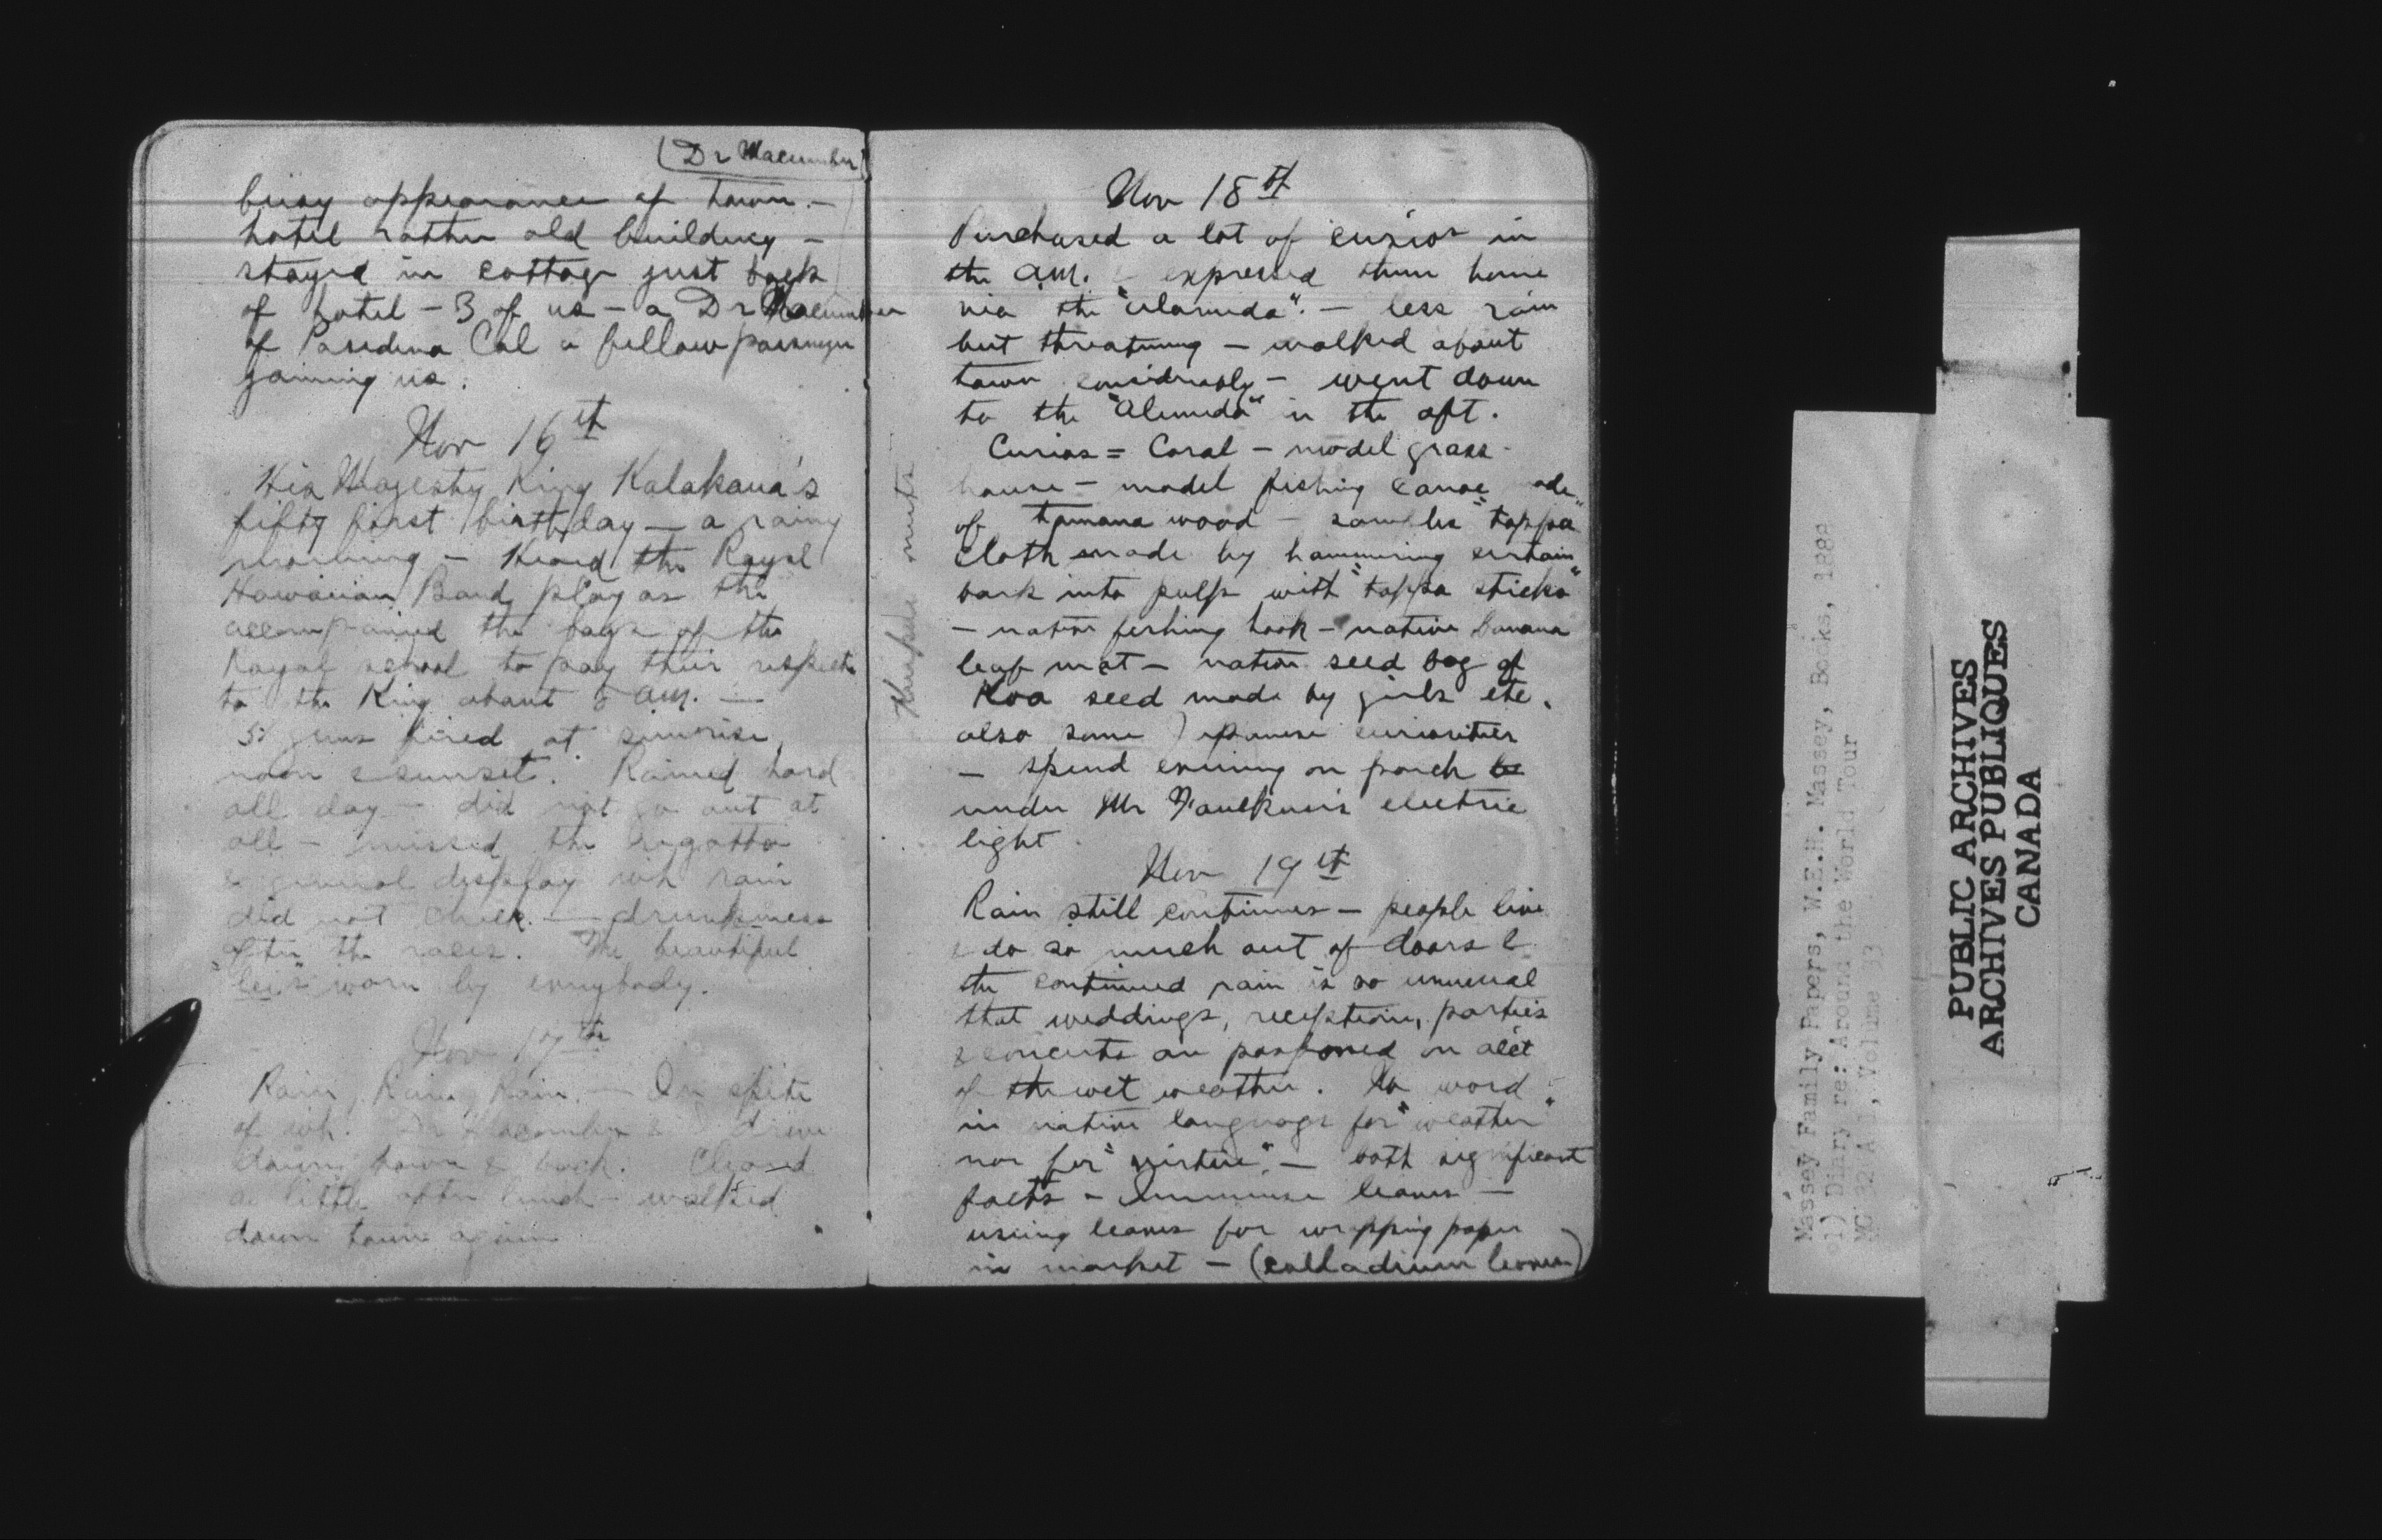 (Dr Macumber)
busy appearance of town. —
hotel rather old building —
stayed in cottage just back
of hotel — 3 of us — a Dr Macumber
of Pasedena Cal a fellow passenger
joining us.
Nov 16th
His Majesty King Kalakaua's
fifty first birthday — a rainy
morning — Heard the Royal
Hawaiian Band play as the
accompanied the boys of the
Royal school to pay their respects
to the King about 8 am. —
51 guns fired at sunrise,
noon & sunset. Rained hard
all day — did not go out at
all — missed the regatta
& general display wh rain
did not check. — drunkenness
after the races. The beautiful
"leis" worn by everybody.
Nov 17th
Rain, Rain, Rain. — In spite
of wh. Dr Macomber & I drove
down town & back. Cleared
a little after lunch — walked
down town again
Nov 18th
Purchased a lot of curios in
the am. & expressed them home
via the "Alameda". — less rain
but threatning — walked about
town considerably — went down
to the "Alemeda" in the aft.
Curios = Coral — model grass
house — model fishing canoe made
of tamana wood — samples "tappa"
cloth made by hammering certain
bark into pulp with "tappa sticks"
— native fishing hook — native banana
leaf mat — native seed bag of
Koa seed made by girls etc.
also some Japanese curiosities
— spend evening on porch
under Mr Faulkner's electric
light
Nov 19th
Rain still continues — people live
& do so much out of doors &
the continued rain is so unusual
that weddings, receptions, parties
& concerts are postponed on acct
of the wet weather. No word
in native language for "weather"
nor for "virtue". — both significant
facts — Immense leaves —
using leaves for wrapping paper
in market — (calladium leaves)
nuts
Massey Family Papers, W.E.H. Massey, Books, 1888
1) Diary re: Around the World Tour
MG 32 A 1, Volume 33
PUBLIC ARCHIVES
ARCHIVES PUBLIQUES
CANADA